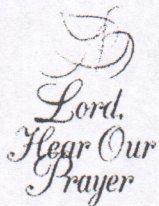 Lord,
Hear Our
Prayer